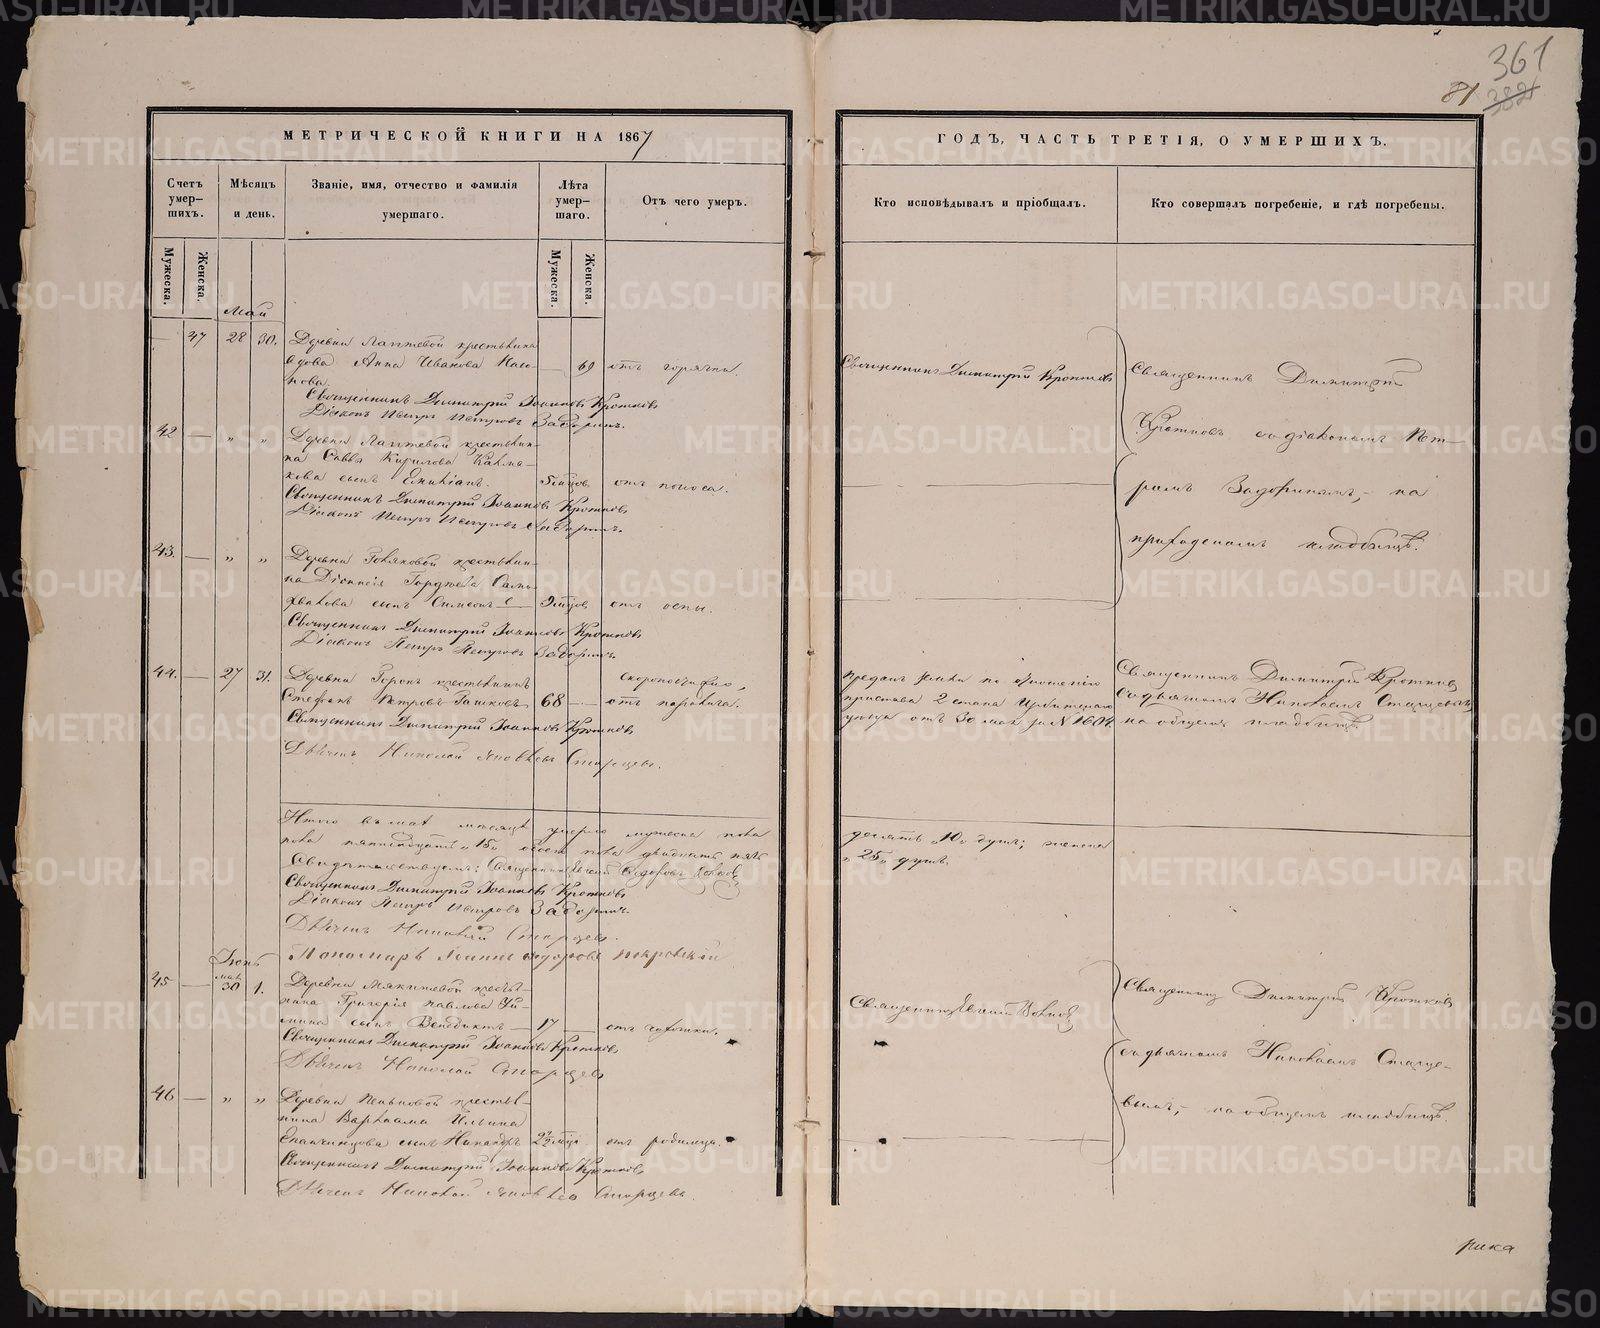 361
81 382
МЕТРИЧЕСКОЙ КНИГИ НА 1867
ГОДЪ, ЧАСТЬ ТРЕТІЯ, О УМЕРШИХЪ.
Счетъ умер-шихъ.
Мѣсяцъ и день.
Званіе, имя, отчество и фамилія умершаго.
Лѣта умер-шаго.
Отъ чего умеръ.
Кто исповѣдывалъ и пріобщалъ.
Кто совершалъ погребеніе, и гдѣ погребены.
Мужеска.
Женска.
Мужеска.
Женска.
Май
47 28 30. Деревни Лаптевой крестьянка
вдова Анна Иванова
69 отъ горячки.
Священникъ Димитрій Кротковъ
Священникъ Димитрій Іоанновъ Кротковъ
Діаконъ Петръ Петровъ Задоринъ.
Священникъ Димитрій
Кротковъ съ діакономъ Пет-
ромъ Задоринымъ, на
приходскомъ кладбищѣ.
42 — „ „ Деревни Лаптевой крестьяни-
на Саввы Кирилова
сынъ Емиліанъ. 5 мѣсяцовъ отъ поноса.
Священникъ Димитрій Іоанновъ Кротковъ
Діаконъ Петръ Петровъ Задоринъ.
43. — „ „ Деревни крестьяни-
на Діонисія Гордѣева
сынъ Симеонъ отъ оспы.
Священникъ Димитрій Іоанновъ Кротковъ
Діаконъ Петръ Петровъ Задоринъ.
44. — 27 31. Деревни крестьянинъ
Стефанъ Петровъ 68 — скоропостижно,
отъ паралича.
Священникъ Димитрій Іоанновъ Кротковъ
Дьячекъ Николай Яковлевъ Старцевъ.
преданъ землѣ по отношенію
пристава 2 стана Ирбитскаго
уѣзда отъ 30 мая за № 1604
Священникъ Димитрій Кротковъ
съ дьячкомъ Николаемъ Старцевымъ
на общемъ кладбищѣ.
Итого въ маѣ мѣсяцѣ умерло мужеска пола
десять „10„ душъ; женска
пола пятнадцать „15„ обоего пола двадцать пять
„25„ душъ.
Свидѣтельствуемъ: Священникъ
Священникъ Димитрій Іоанновъ Кротковъ
Діаконъ Петръ Петровъ Задоринъ.
Дьячекъ Николай Старцевъ.
Пономарь Покровскій
Іюнь
мая
45 — 30 1. Деревни крестья-
нина Григорія Павлова
сынъ Венедиктъ — 17 — отъ чахотки.
Священникъ Димитрій Іоанновъ Кротковъ
Дьячекъ Николай Старцевъ
Священникъ
Священникъ Димитрій Кротковъ
съ дьячкомъ Николаемъ Старце-
вымъ, — на общемъ кладбищѣ.
46 — „ „ Деревни крестья-
нина Варлаама Ильина
сынъ Никандръ отъ родимца.
Священникъ Димитрій Іоанновъ Кротковъ
Дьячекъ Николай Яковлевъ Старцевъ.
METRIKI.GASO-URAL.RU